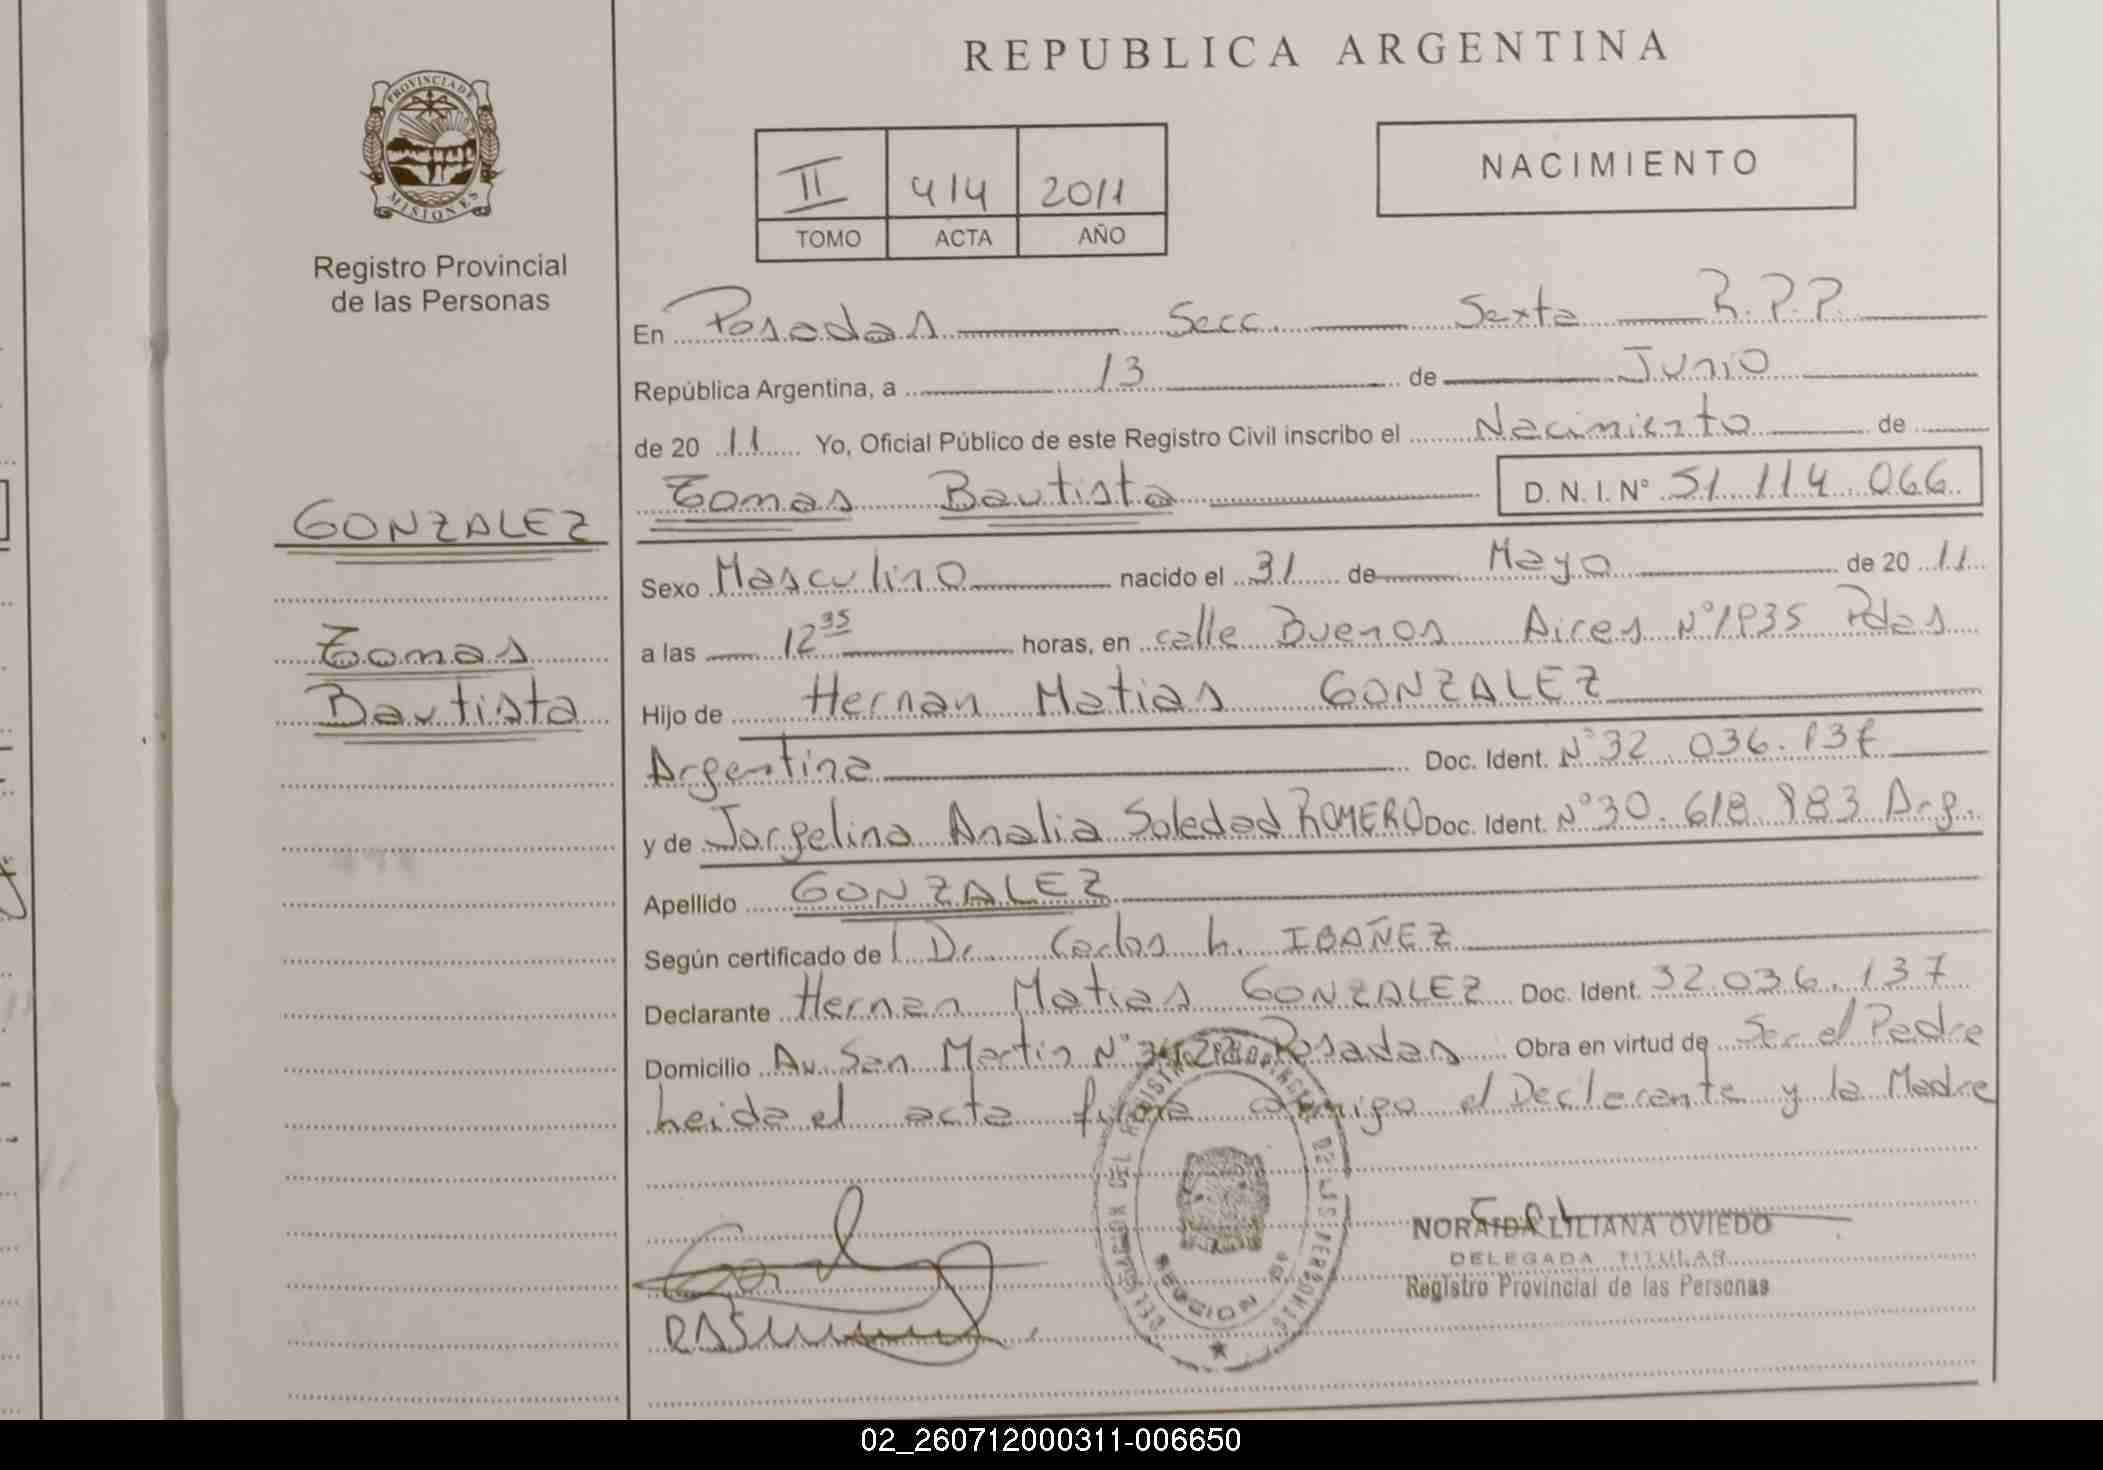 REPUBLICA ARGENTINA
PROVINCIA DE
MISIONES
Registro Provincial
de las Personas
II 414 2011
TOMO ACTA AÑO
NACIMIENTO
En Posadas Secc. Sexta R.P.P.
República Argentina, a 13 de Junio
de 20 11 Yo, Oficial Público de este Registro Civil inscribo el Nacimiento de
Tomas Bautista D.N.I. Nº 51.114.066
GONZALEZ
Tomas
Bautista
Sexo Masculino nacido el 31 de Mayo de 20 11
a las 12 35 horas, en calle Buenos Aires Nº 1935 Pdas
Hijo de Hernan Matias GONZALEZ
Argentina Doc. Ident. Nº 32.036.137
y de Jorgelina Analia Soledad ROMERO Doc. Ident. Nº 30.618.983 Arg.
Apellido GONZALEZ
Según certificado de l Dr. Carlos h. IBAÑEZ
Declarante Hernan Matias GONZALEZ Doc. Ident. 32.036.137
Domicilio Av. San Martin Nº Posadas Obra en virtud de Ser el Padre
heida el acta firma conmigo el Declarante y la Madre
DELEGACION DEL REGISTRO PROVINCIAL DE LAS PERSONAS
SECCION 6ª
NORAIDA LILIANA OVIEDO
DELEGADA TITULAR
Registro Provincial de las Personas
02_260712000311-006650